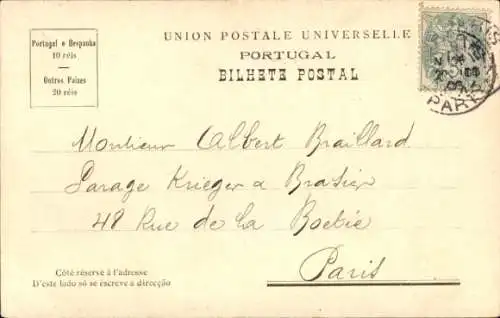 Portugal e Hespanha
10 réis
Outros Paizes
20 réis
UNION POSTALE UNIVERSELLE
PORTUGAL
BILHETE POSTAL
PARIS
Monsieur Albert Braillard
Garage Krieger & Brasier
48 Rue de la Boetie
Paris
Côté réservé à l'adresse
D'este lado só se escreve a direcção